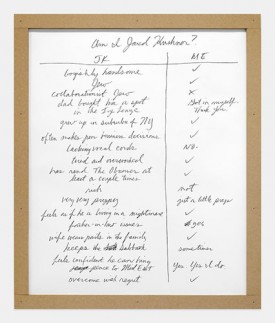 Am I Jared Kushner?
JK ME
boyishly handsome ✓
Jew ✓
collaborationist Jew ×
dad bought him a spot Got in myself.
in the Ivy League Thank you.
grew up in suburbs of NJ ✓
often makes poor business decisions ✓
lacking vocal cords No
tired and overworked ✓
has read The Observer at ✓
least a couple times
rich not
very very preppy just a little preppy
feels as if he is living in a nightmare ✓
father-in-law issues yes
wife wears pants in the family ✓
keeps the sabbath sometimes
feels confident he can bring Yes. Yes I do.
peace to Mid East
overcome with regret ✓